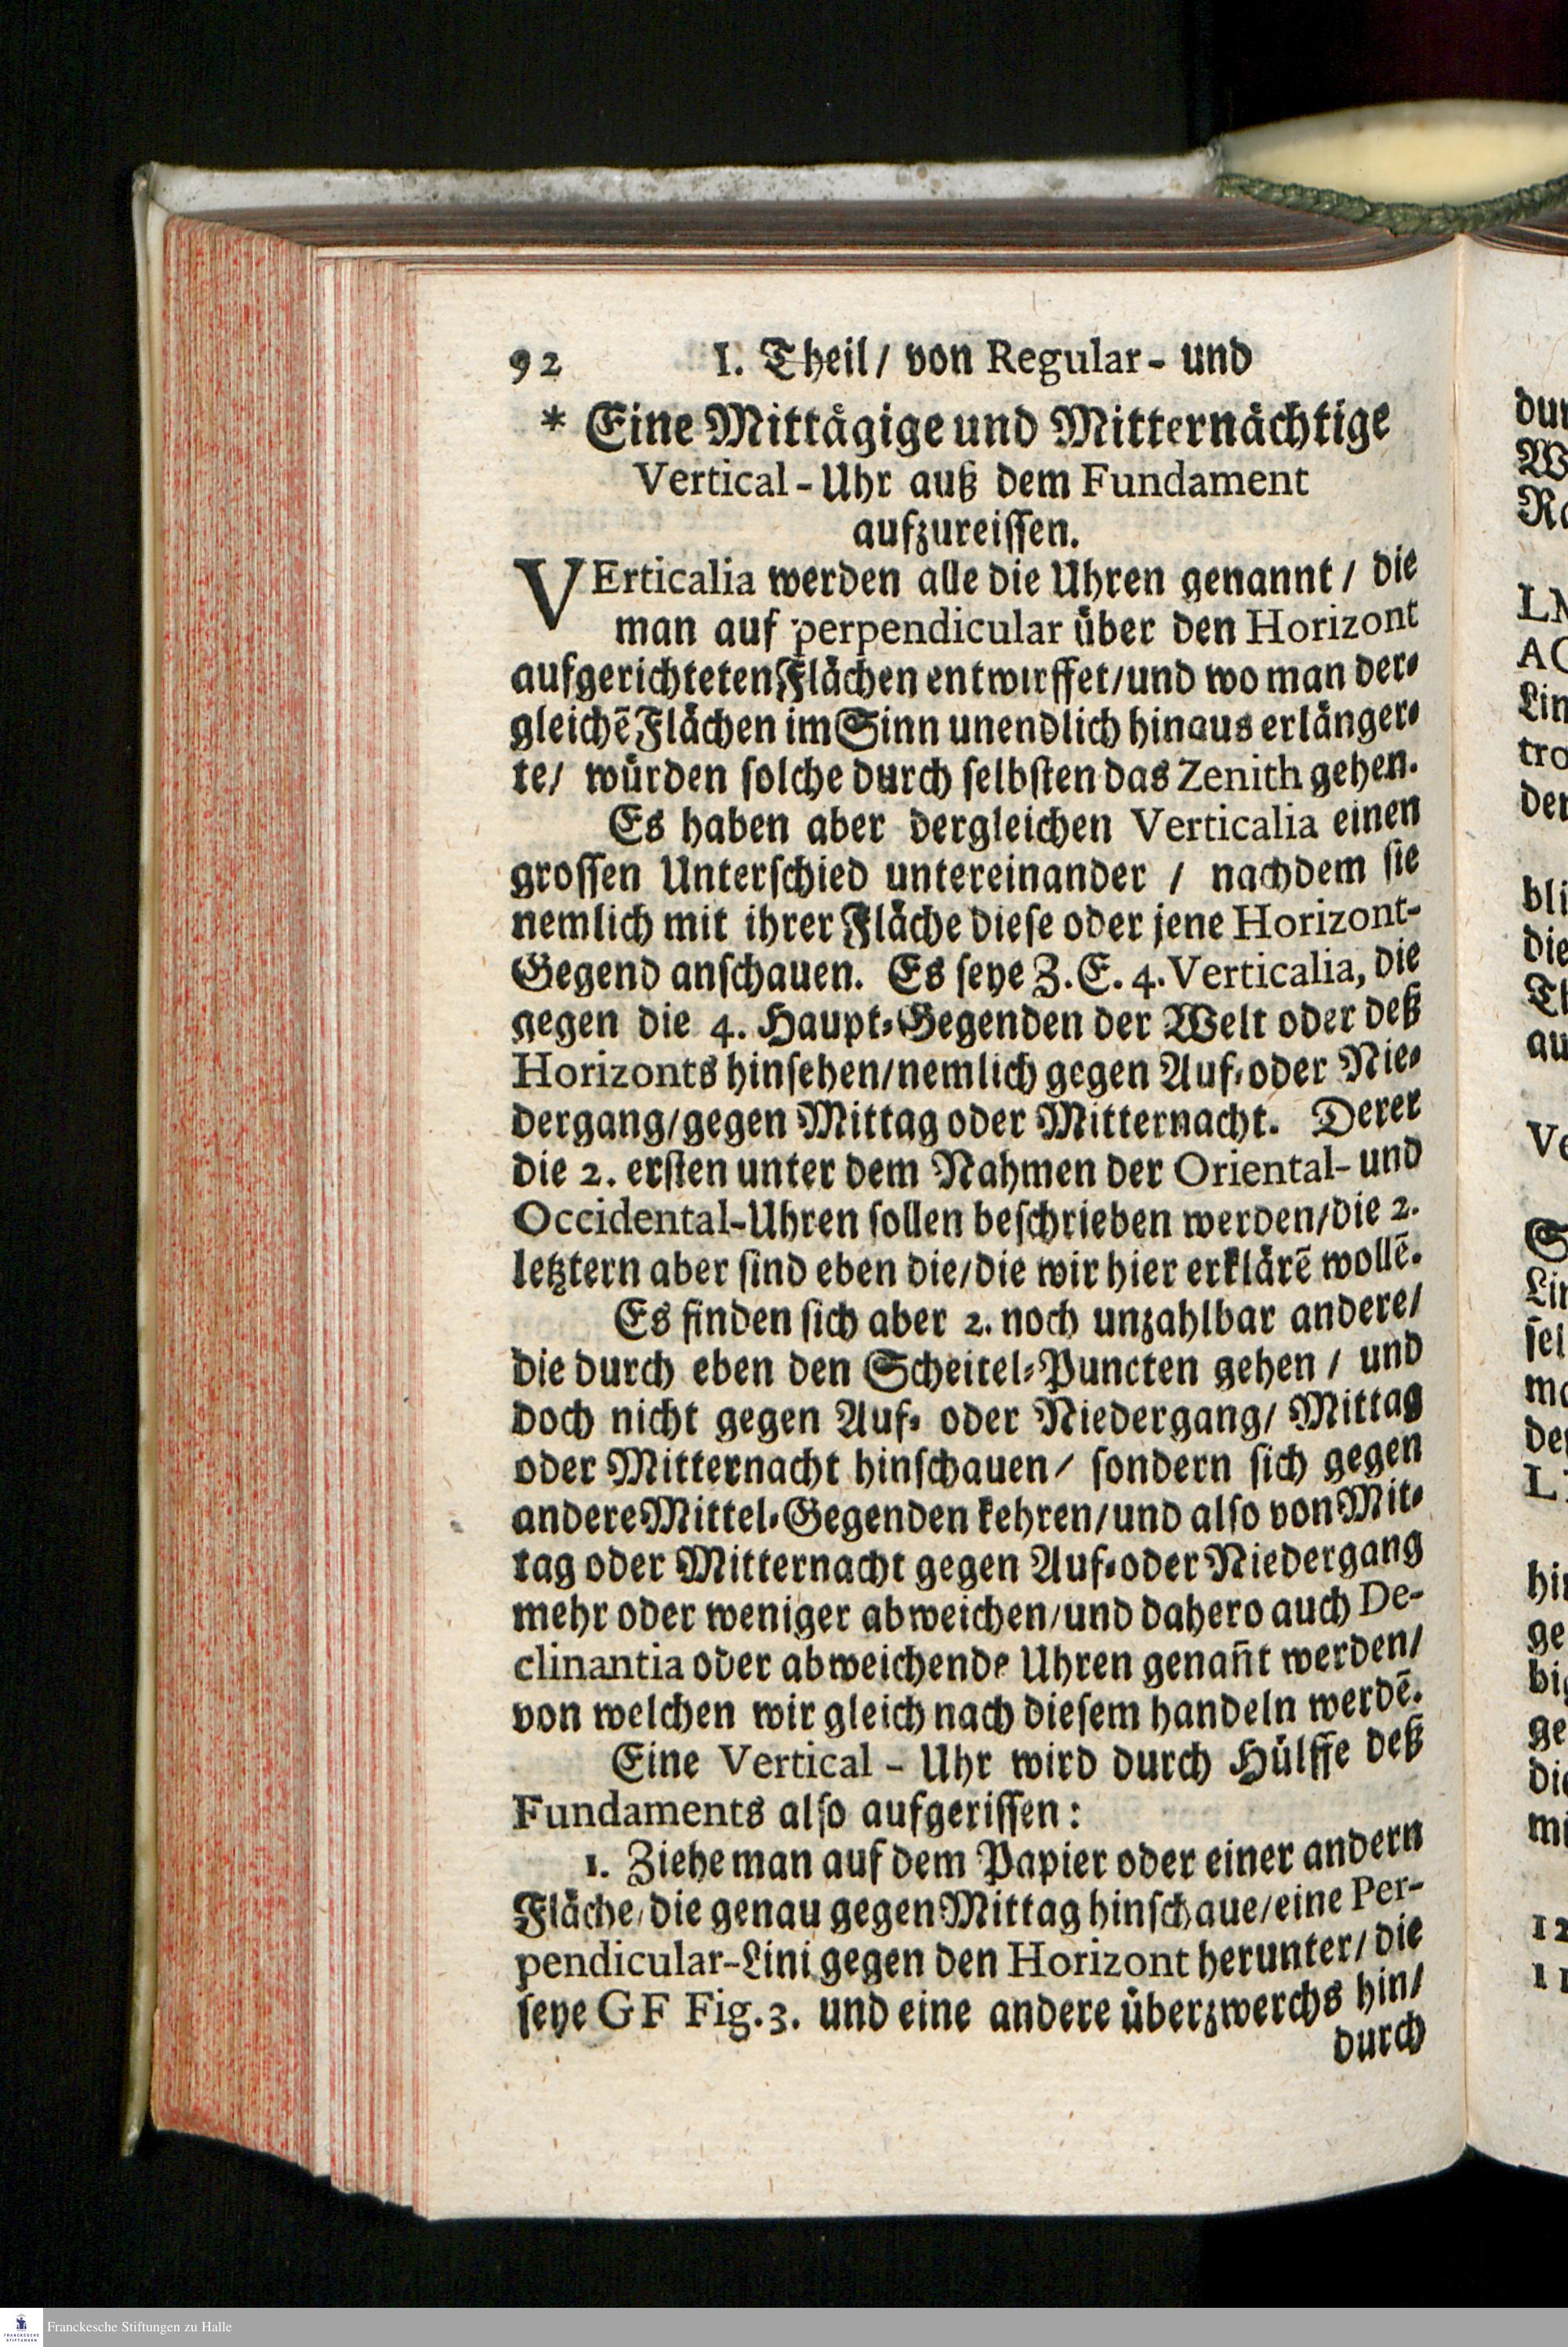 92 I. Theil/ von Regular- und
* Eine Mittägige und Mitternächtige
Vertical-Uhr auß dem Fundament
aufzureissen.
VErticalia werden alle die Uhren genannt/ die
man auf perpendicular über den Horizont
aufgerichteten Flächen entwirffet/und wo man der-
gleichẽ Flächen im Sinn unendlich hinaus erlänger-
te/ würden solche durch selbsten das Zenith gehen.
Es haben aber dergleichen Verticalia einen
grossen Unterschied untereinander / nachdem sie
nemlich mit ihrer Fläche diese oder jene Horizont-
Gegend anschauen. Es seye Z.E. 4. Verticalia, die
gegen die 4. Haupt-Gegenden der Welt oder deß
Horizonts hinsehen/nemlich gegen Auf-oder Nie-
dergang/gegen Mittag oder Mitternacht. Derer
die 2. ersten unter dem Nahmen der Oriental- und
Occidental-Uhren sollen beschrieben werden/die 2.
letztern aber sind eben die/die wir hier erklärẽ wollẽ.
Es finden sich aber 2. noch unzahlbar andere/
die durch eben den Scheitel-Puncten gehen / und
doch nicht gegen Auf- oder Niedergang/ Mittag
oder Mitternacht hinschauen/ sondern sich gegen
andere Mittel-Gegenden kehren/und also von Mit-
tag oder Mitternacht gegen Auf-oder Niedergang
mehr oder weniger abweichen/und dahero auch De-
clinantia oder abweichende Uhren genañt werden/
von welchen wir gleich nach diesem handeln werdẽ.
Eine Vertical - Uhr wird durch Hülffe deß
Fundaments also aufgerissen:
1. Ziehe man auf dem Papier oder einer andern
Fläche/die genau gegen Mittag hinschaue/eine Per-
pendicular-Lini gegen den Horizont herunter/die
seye GF Fig.3. und eine andere überzwerchs hin/
durch
Franckesche Stiftungen zu Halle